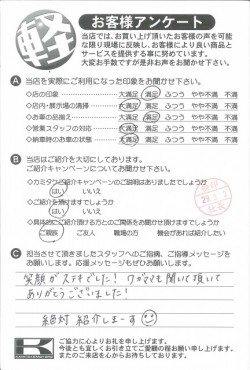 軽
お客様アンケート
当店では、お買い上げ頂いたお客様の声を可能
な限り現場に反映し、お客様により良い商品と
サービスを提供する事に努めています。
大変お手数ですが是非お声をお聞かせ下さい。
A 当店を実際にご利用になった印象をお聞かせ下さい。
◇店の印象 大満足 満足 ふつう やや不満 不満
◇店内・展示場の清掃 大満足 満足 ふつう やや不満 不満
◇お車の品揃え 大満足 満足 ふつう やや不満 不満
◇営業スタッフの対応 大満足 満足 ふつう やや不満 不満
◇納車時のお車の状態 大満足 満足 ふつう やや不満 不満
B 当店はご紹介を大切にしております。
ご紹介キャンペーンについてお聞かせ下さい。
◇カミタケご紹介キャンペーンのご説明はありましたでしょうか
はい いいえ
◇ご紹介を頂けますでしょうか
はい いいえ
◇具体的にご紹介頂ける方とのご関係をお聞かせ頂けますでしょうか
ご親族 ご友人 職場の方 機会があれば紹介したい
C 担当させて頂きましたスタッフへのご指摘、ご指導メッセージを
お願いします。応援メッセージもぜひお願いします。
笑顔がステキでした！ワガママも聞いて頂いて
ありがとうございました！
絶対紹介しまーす
K
ご協力に心よりお礼を申し上げます。
今後とも宜しくお引き立てご愛顧の程お願い申し上げます。
またのご来店を心からお待ちしております。